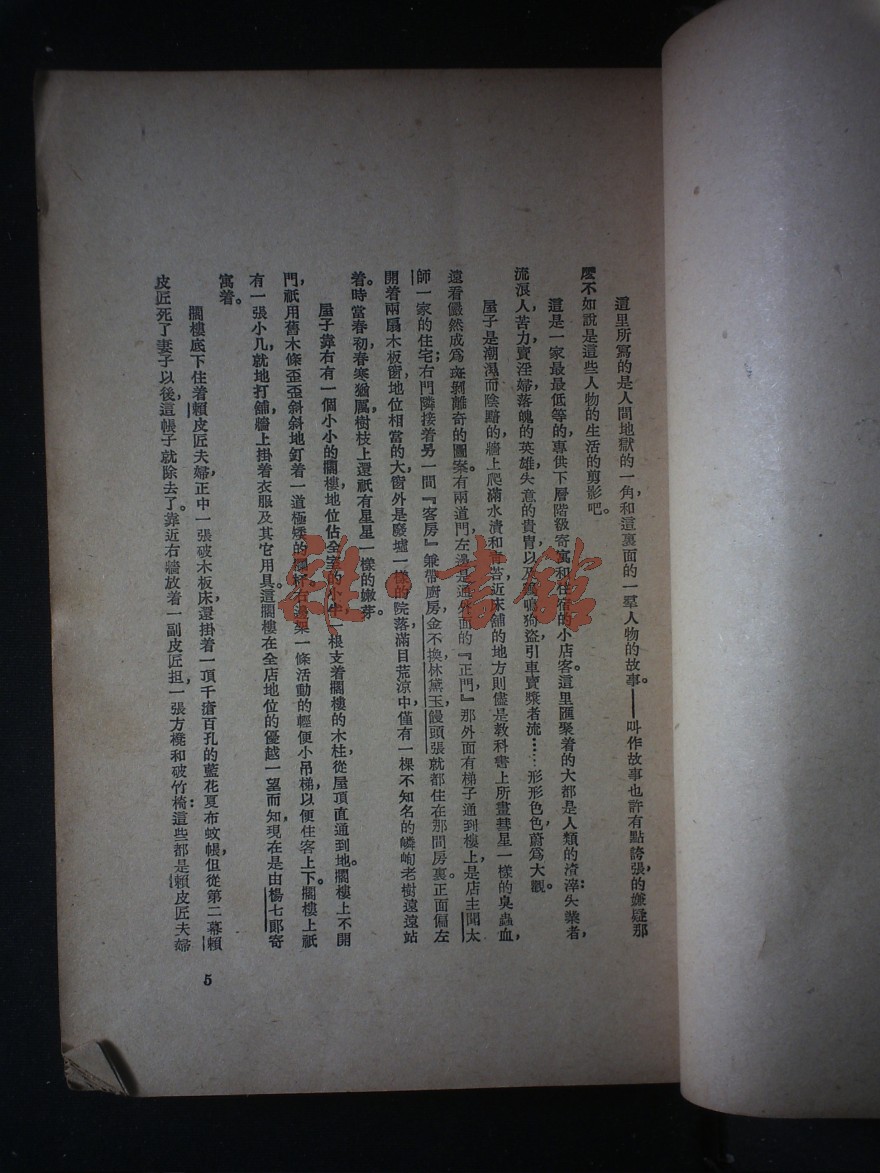 這里所寫的是人間地獄的一角，和這裏面的一羣人物的故事。——叫作故事也許有點誇張的嫌疑，那
麽不如說是這些人物的生活的剪影吧。
這是一家最最低等的，專供下層階級寄寓和住宿的小店客。這里匯聚着的大都是人類的渣滓：失業者，
流浪人，苦力，賣淫婦，落魄的英雄，失意的貴胄，以及鷄鳴狗盜，引車賣漿者流……形形色色，蔚爲大觀。
屋子是潮濕而陰黯的，牆上爬滿水漬和靑苔，近床舖的地方則儘是敎科書上所畫彗星一樣的臭蟲血，
遠看儼然成爲斑剝離奇的圖案。有兩道門，左邊是通外面的『正門』，那外面有梯子通到樓上，是店主聞太
師一家的住宅；右門隣接着另一間『客房』兼帶廚房，金不換，林黛玉，饅頭張就都住在那間房裏。正面偏左
開着兩扇木板窗，地位相當的大，窗外是廢墟一樣的院落，滿目荒涼中，僅有一棵不知名的嶙峋老樹遠遠站
着。時當春初，春寒猶厲，樹枝上還祇有星星一樣的嫩芽。
屋子靠右有一個小小的閣樓，地位佔全室的小半，一根支着閣樓的木柱從屋頂直通到地。閣樓上不開
門，祇用舊木條歪歪斜斜地釘着一道極矮的欄杆，右邊架一條活動的輕便小吊梯，以便住客上下。閣樓上祇
有一張小几，就地打舖，牆上掛着衣服及其它用具。這閣樓在全店地位的優越一望而知，現在是由楊七郞寄
寓着。
閣樓底下住着賴皮匠夫婦，正中一張破木板床，還掛着一頂千瘡百孔的藍花夏布蚊帳，但從第二幕賴
皮匠死了妻子以後，這帳子就除去了。靠近右牆放着一副皮匠担，一張方櫈和破竹椅：這些都是賴皮匠夫婦
5
雜·書館